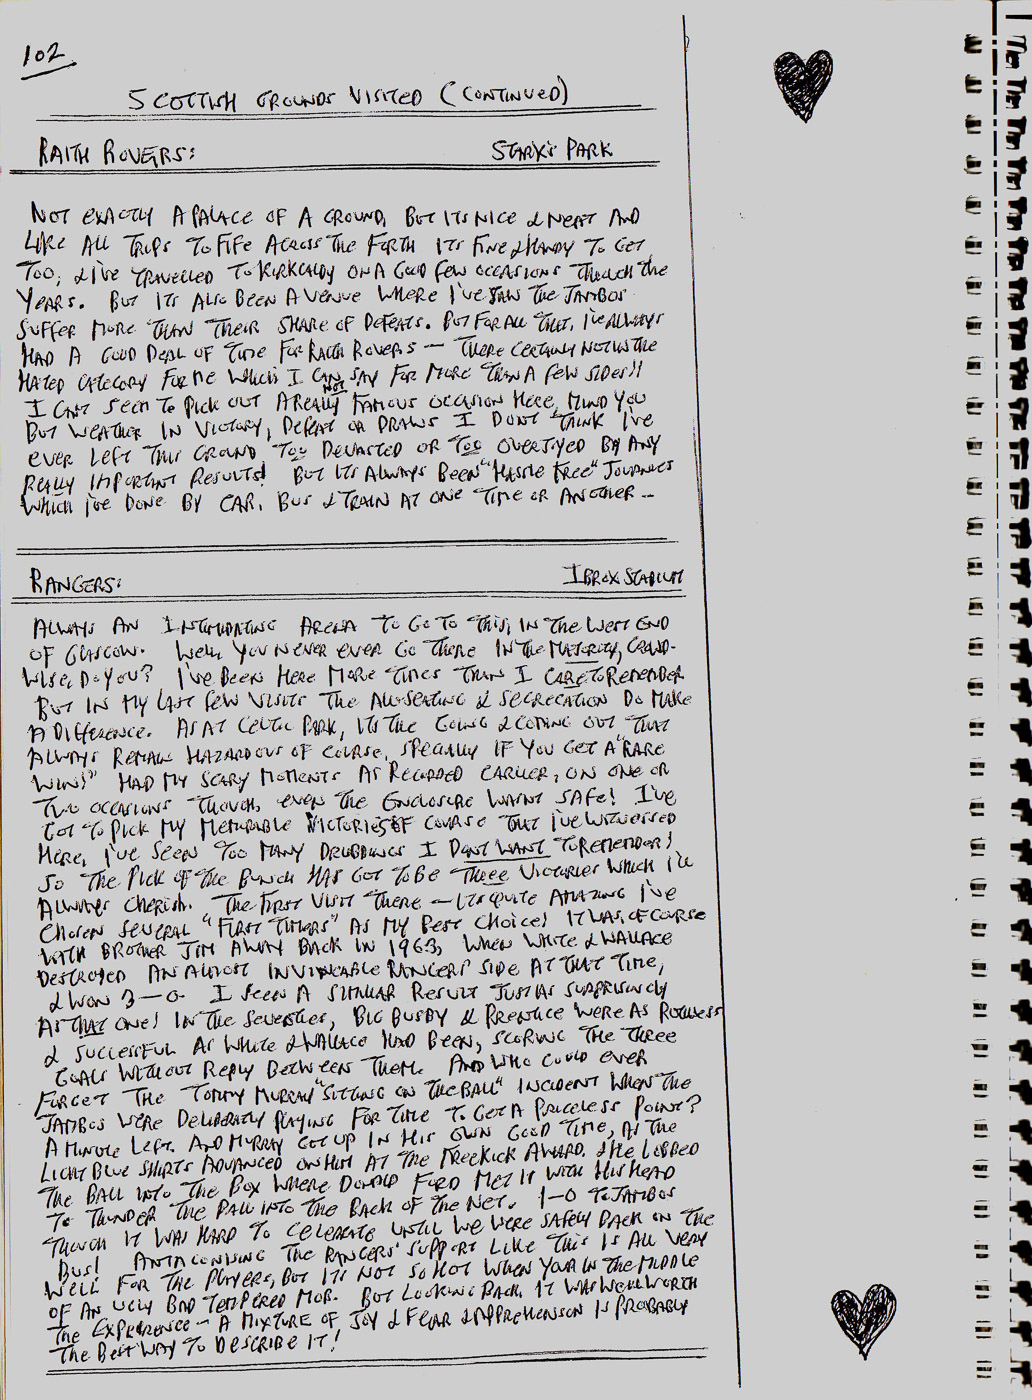 102
SCOTTISH GROUNDS VISITED (CONTINUED)
RAITH ROVERS: STARK'S PARK
NOT EXACTLY A PALACE OF A GROUND, BUT ITS NICE & NEAT AND
LIKE ALL TRIPS TO FIFE ACROSS THE FORTH ITS FINE & HANDY TO GET
TOO, & I'VE TRAVELLED TO KIRKCALDY ON A GOOD FEW OCCASIONS THROUGH THE
YEARS. BUT ITS ALSO BEEN A VENUE WHERE I'VE SAW THE JAMBOS
SUFFER MORE THAN THEIR SHARE OF DEFEATS. BUT FOR ALL THAT, I'VE ALWAYS
HAD A GOOD DEAL OF TIME FOR RAITH ROVERS — THERE CERTAINLY NOT IN THE
HATED CATEGORY FOR ME WHICH I CAN NOT SAY FOR MORE THAN A FEW SIDES!!
I CAN'T SEEM TO PICK OUT A REALLY FAMOUS OCCASION HERE, MIND YOU
BUT WEATHER IN VICTORY, DEFEAT OR DRAWS I DON'T THINK I'VE
EVER LEFT THIS GROUND TOO DEVASTED OR TOO OVERJOYED BY ANY
REALLY IMPORTANT RESULTS! BUT ITS ALWAYS BEEN "HASSLE FREE" JOURNEYS
WHICH I'VE DONE BY CAR, BUS & TRAIN AT ONE TIME OR ANOTHER --
RANGERS: IBROX STADIUM
ALWAYS AN INTIMIDATING ARENA TO GO TO THIS, IN THE WEST END
OF GLASGOW. WELL, YOU NEVER EVER GO THERE IN THE MAJORITY, CROWD-
WISE, DO YOU? I'VE BEEN HERE MORE TIMES THAN I CARE TO REMEMBER
BUT IN MY LAST FEW VISITS THE ALL-SEATING & SEGREGATION DO MAKE
A DIFFERENCE. AS AT CELTIC PARK, ITS THE GOING & COMING OUT THAT
ALWAYS REMAIN HAZARDOUS OF COURSE, SPECIALLY IF YOU GET A "RARE
WIN!" HAD MY SCARY MOMENTS AS RECORDED EARLIER, ON ONE OR
TWO OCCASIONS THOUGH, EVEN THE ENCLOSURE WASN'T SAFE! I'VE
GOT TO PICK MY MEMORABLE VICTORIES OF COURSE THAT I'VE WITNESSED
HERE, I'VE SEEN TOO MANY DRUBBINGS I DON'T WANT TO REMEMBER!
SO THE PICK OF THE BUNCH HAS GOT TO BE THREE VICTORIES WHICH I'LL
ALWAYS CHERISH. THE FIRST VISIT THERE — ITS QUITE AMAZING I'VE
CHOSEN SEVERAL "FIRST TIMERS" AS MY BEST CHOICE! IT WAS, OF COURSE
WITH BROTHER JIM AWAY BACK IN 1963, WHEN WHITE & WALLACE
DESTROYED AN ALMOST INVINCABLE RANGERS SIDE AT THAT TIME,
& WON 3—0 I SEEN A SIMILAR RESULT JUST AS SURPRISINGLY
AS THAT ONE! IN THE SEVENTIES, BIG BUSBY & PRENTICE WERE AS RUTHLESS
& SUCCESSFUL AS WHITE & WALLACE HAD BEEN, SCORING THE THREE
GOALS WITHOUT REPLY BETWEEN THEM. AND WHO COULD EVER
FORGET THE TOMMY MURRAY "SITTING ON THE BALL" INCIDENT WHEN THE
JAMBOS WERE DELIBERATLY PLAYING FOR TIME TO GET A PRICELESS POINT?
A MINUTE LEFT. AND MURRAY GOT UP IN HIS OWN GOOD TIME, AS THE
LIGHT BLUE SHIRTS ADVANCED ON HIM AT THE FREEKICK AWARD. & HE LOBBED
THE BALL INTO THE BOX WHERE DONALD FORD MET IT WITH HIS HEAD
TO THUNDER THE BALL INTO THE BACK OF THE NET. 1—0 TO JAMBOS
THOUGH IT WAS HARD TO CELEBRATE UNTIL WE WERE SAFELY BACK ON THE
BUS! ANTAGONISING THE RANGERS' SUPPORT LIKE THIS IS ALL VERY
WELL FOR THE PLAYERS, BUT IT'S NOT SO HOT WHEN YOUR IN THE MIDDLE
OF AN UGLY BAD TEMPERED MOB. BUT LOOKING BACK, IT WAS WELL WORTH
THE EXPERIENCE — A MIXTURE OF JOY & FEAR & APPREHENSION IS PROBABLY
THE BEST WAY TO DESCRIBE IT!